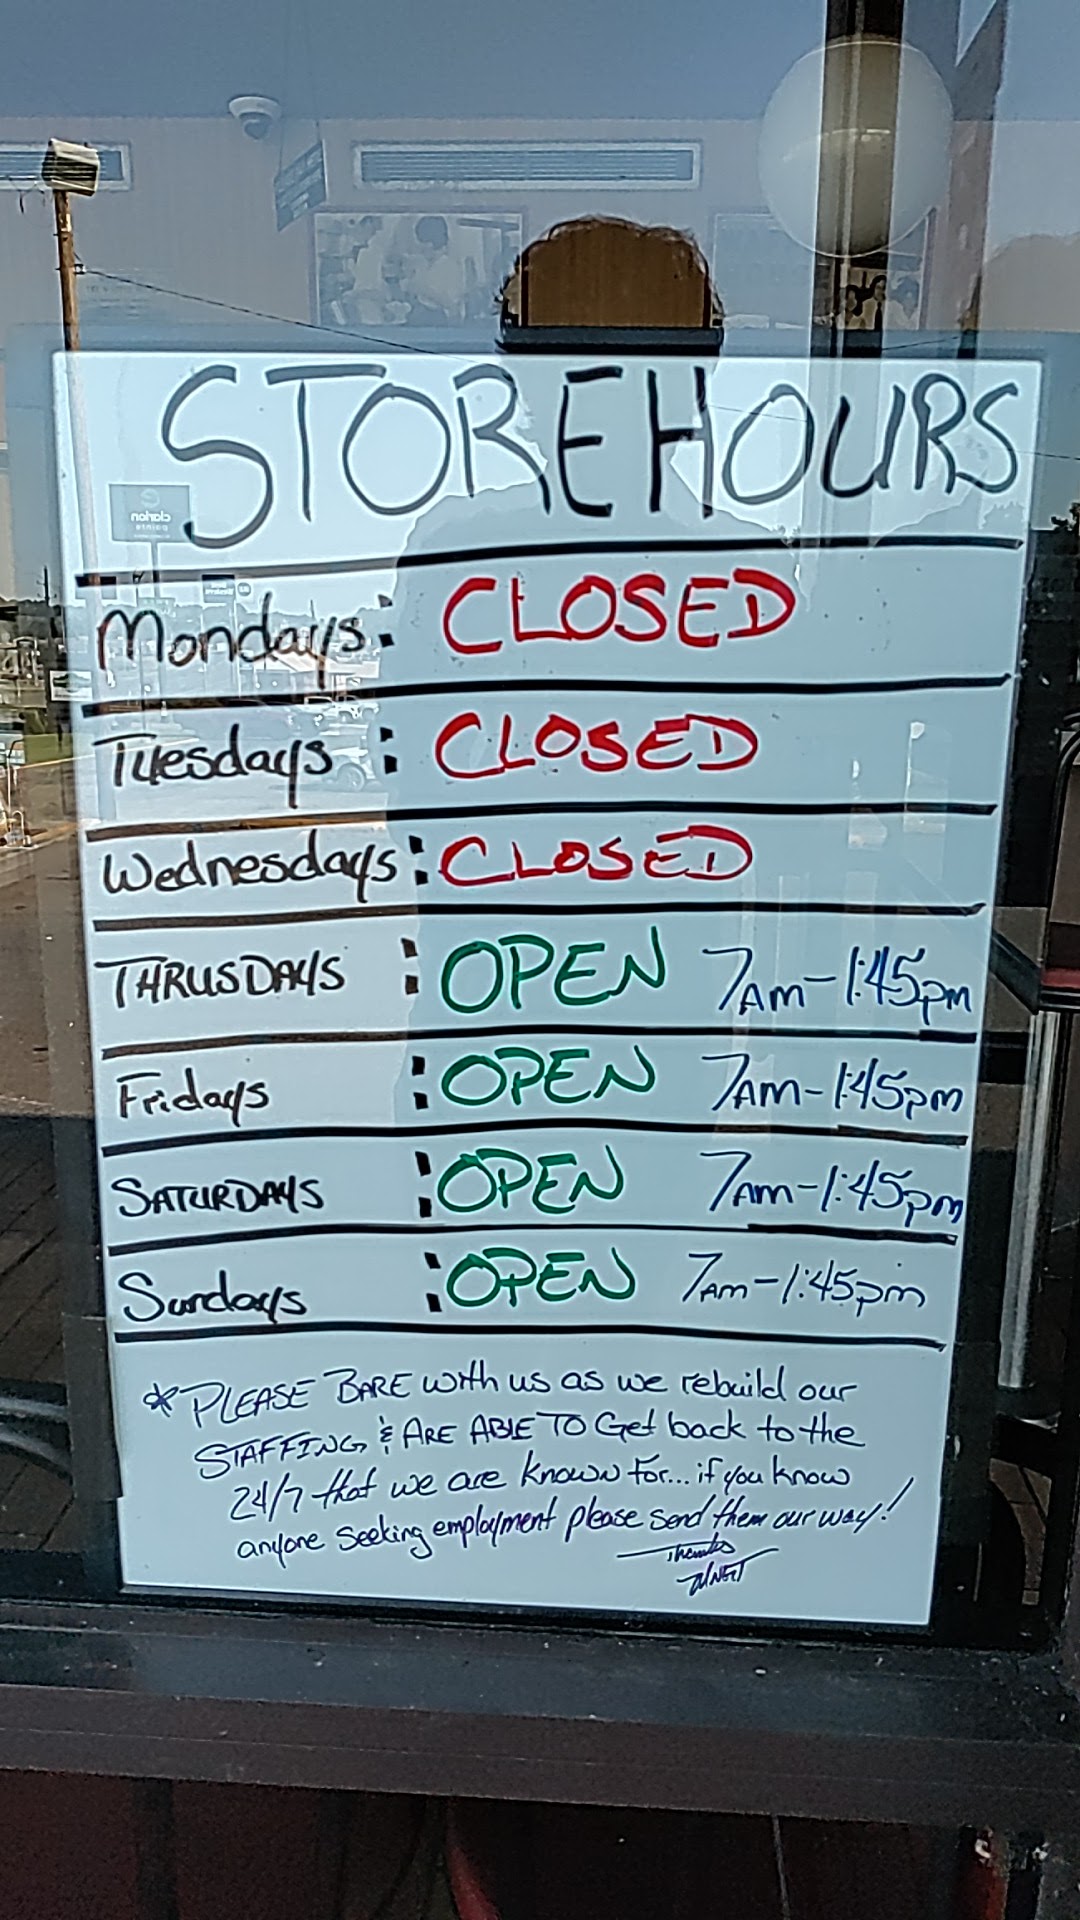 STORE HOURS
Mondays: CLOSED
Tuesdays: CLOSED
Wednesdays: CLOSED
THRUSDAYS: OPEN 7AM-1:45pm
Fridays: OPEN 7AM-1:45pm
SATURDAYS: OPEN 7AM-1:45pm
Sundays: OPEN 7AM-1:45pm
*PLEASE BARE with us as we rebuild our
STAFFING & ARE ABLE TO Get back to the
24/7 that we are known for... if you know
anyone seeking employment please send them our way!
Thanks
MNGT